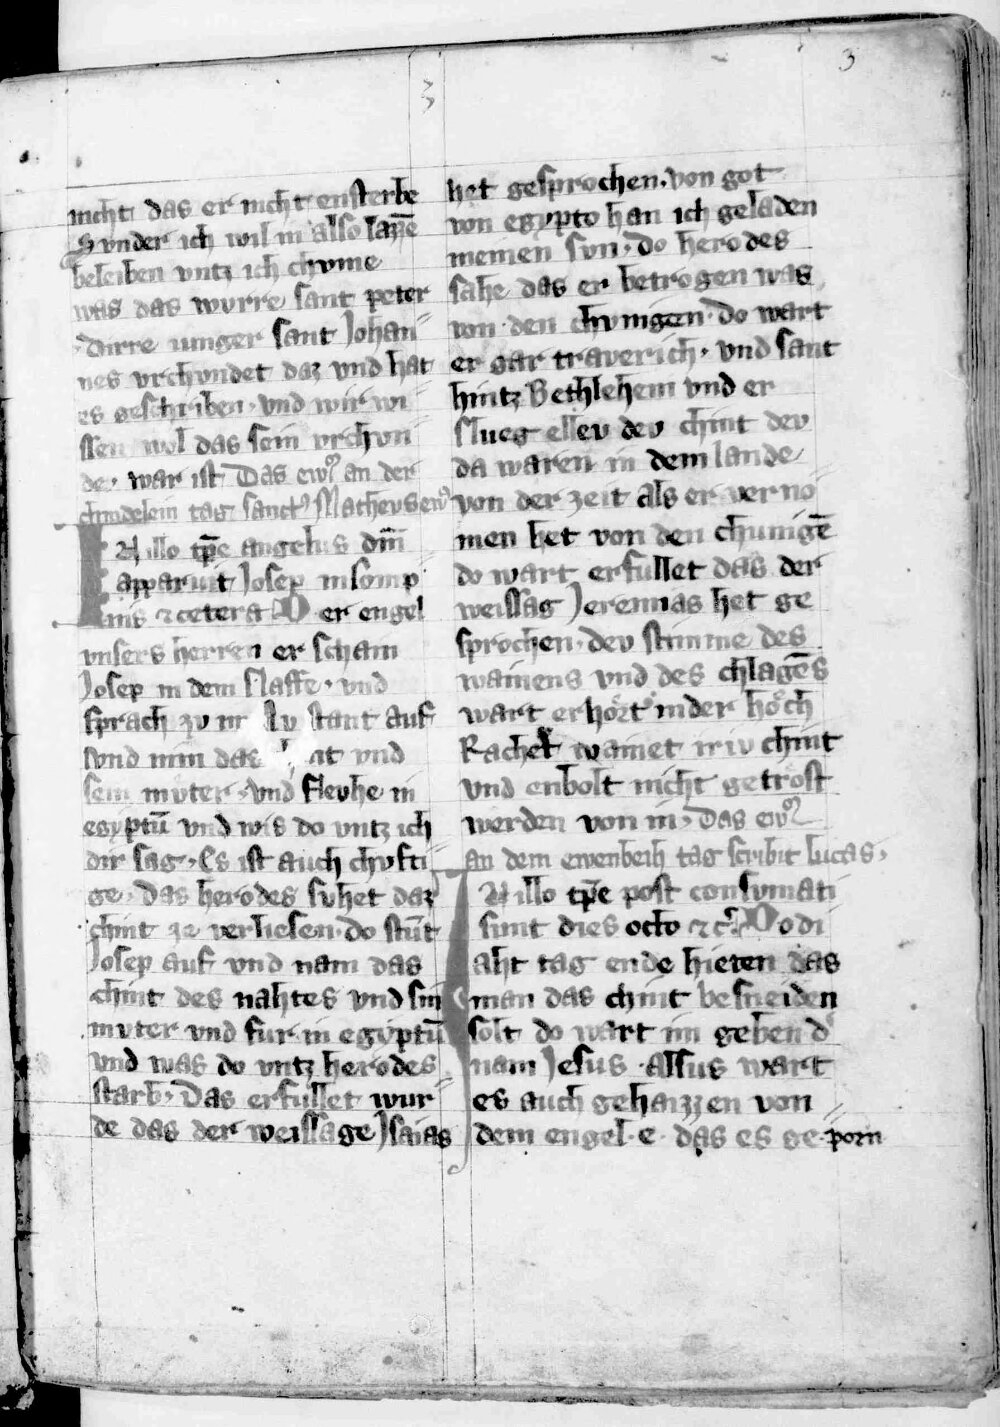 3
3
nicht das er nicht ensterbe
Svnder ich wil in also lazzē
beleiben vntz ich chvme
was das wurre sant peter
dirre iunger sant Johan
nes vrchvndet daz vnd hat
es geschriben · vnd wir wi
ssen wol das sein vrchvn
de · war ist Das ew̉ an der
chindelein tag sanctꝰ Matheus ew̉
IN illo tp̄e angelus dm̄
apparuit Josep in sompi
nis ⁊ cetera Der engel
vnsers herren er schain
Josep in dem slaffe · vnd
sprach zv im stant auf
vnd nim das vnd
sein mvter · vnd flevhe in
egyptū vnd wis do vntz ich
dir sag · Es ist auch chvfti
ge · Das herodes svhet daz
chint ze verliesen · do stūt
Josep auf vnd nam das
chint des nahtes vnd sin
mvter vnd fur in egyptū
vnd was do vntz herodes
starb · Das erfullet wur
de das der weissage Jsaias
het gesprochen · von got
von egypto han ich geladen
meinen svn · do herodes
sahe das er betrogen was
von den chvnigen · do wart
er gar traverich · vnd sant
hintz Bethlehem vnd er
slueg ellev dev chint dev
da waren in dem lande
von der zeit als er verno
men het von den chunigē
do wart erfullet das der
weissag Jeremias het ge
sprochen · dev stimme des
wainens vnd des chlagēs
wart erhort in der hoch
Rachel wainet iriv chint
vnd enbolt nicht getrost
werden von in · Das ew̉
an dem ewenbeih tag scribit lucas ·
IN illo tp̄e post consvmati
sunt dies octo ⁊ c̉ · Do di
aht tag ende hieten das
man das chint besneiden
solt do wart im geben d̉
nam Jesus · Alsus wart
es auch gehaizzen von
dem engel · e · das es ge porn